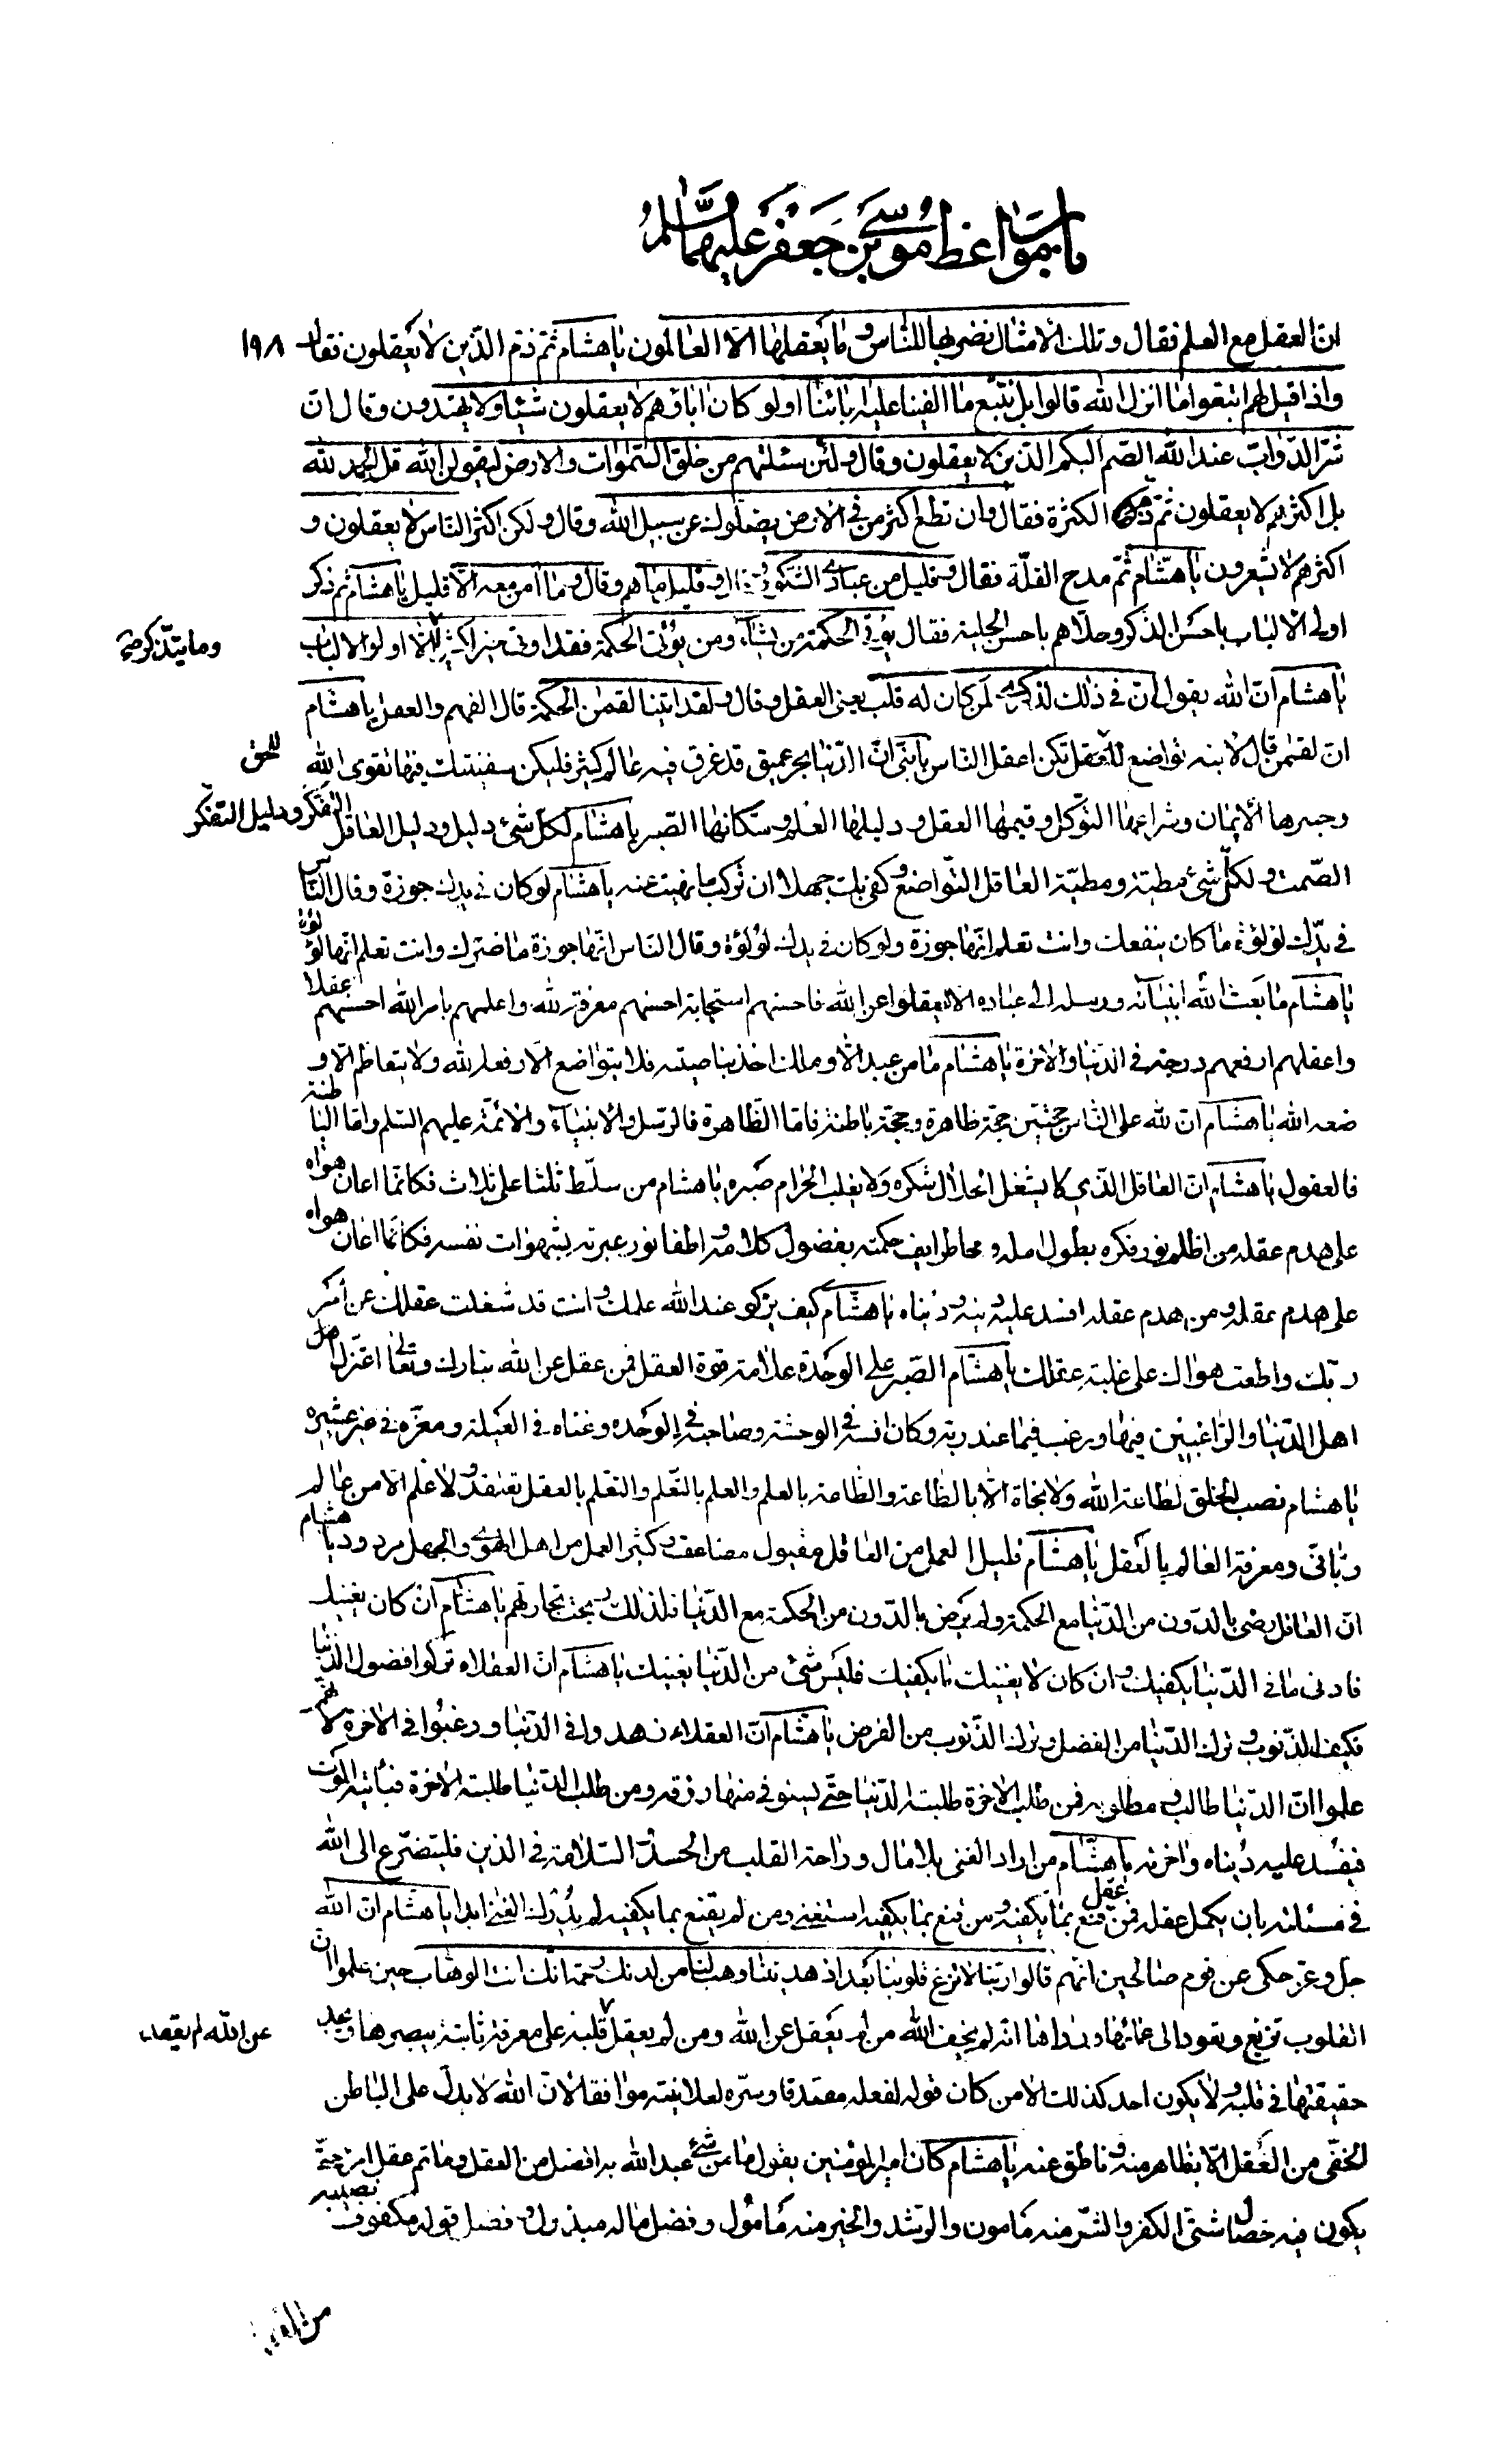 باب مواعظ موسى بن جعفر عليهما السلم
انّ العقل مع العلم فقال وتلك الأمثال نضربها للنّاس وما يعقلها الّا العالمون يا هشام ثمّ ذمّ الذين لا يعقلون فقال ١٩٨
واذا قيل لهم اتبعوا ما انزل الله قالوا بل نتّبع ما الفينا عليه اباءنا اولو كان اباؤهم لا يعقلون شيئا ولا يهتدون وقال انّ
شرّ الدّوابّ عند الله الصّم البكم الذين لا يعقلون وقال ولئن سئلتهم من خلق السّموات والارض ليقولن الله قل الحمد لله
بل اكثرهم لا يعقلون ثمّ ذم الكثرة فقال وان تطع اكثر من فى الارض يضلّوك عن سبيل الله وقال ولكن اكثر الناس لا يعقلون و
اكثرهم لا يشعرون يا هشام ثمّ مدح القلّة فقال وقليل من عبادى الشّكور وقليل ما هم وقال وما امن معه الّا قليل يا هشام ثم ذكر
اولى الالباب باحسن الذكر وحلّاهم باحسن الحلية فقال يؤتى الحكمة من يشاء ومن يؤتى الحكمة فقد اوتى خيرا كثيرا الّا اولوا الالباب
وما يتذكر
يا هشام انّ الله يقول انّ فى ذلك لذكرى لمن كان له قلب يعنى العقل وقال ولقد اتينا لقمن الحكمة قال الفهم والعقل يا هشام
انّ لقمن قال لابنه تواضع تكن اعقل الناس يا بنىّ انّ الدّنيا بحر عميق قد غرق فيه عالم كثير فليكن سفينتك فيها تقوى الله
للحق
وجسرها الأيمان وشراعها التوّكل وقيمها العقل ودليلها العلم وسكانها الصّبر يا هشام لكلّ شئ دليل ودليل العاقل التفكّر ودليل التفكّر
الصّمت ولكلّ شئ مطية ومطيّة العاقل التّواضع وكفى بك جهلا ان تركب ما نهيت عنه يا هشام لو كان فى يدك جوزة وقال النّاس
فى يدك لؤلؤة ما كان ينفعك وانت تعلم انّها جوزة ولو كان فى يدك لؤلؤة وقال الناس انّها جوزة ما ضرّك وانت تعلم انّها لؤلؤة
يا هشام ما بعث الله انبيائه ورسله الى عباده الّا ليعقلوا عن الله فاحسنهم استجابة احسنهم معرفة لله واعلمهم بامر الله احسنهم عقلا
واعقلهم ارفعهم درجة فى الدّنيا والاخرة يا هشام ما من عبد الّا وملك اخذ بناصيته فلا يتواضع الّا رفعه الله ولا يتعاظم الّا و
ضعه الله يا هشام انّ لله على النّاس حجّتين حجّة ظاهرة وحجّة باطنة فامّا الظّاهرة فالرّسل والانبياء والائمّة عليهم السلم وامّا الباطنة
فالعقول يا هشام انّ العاقل الّذى لا يشغل الحلال شكره ولا يغلب الحرام صبره يا هشام من سلّط ثلثا على ثلاث فكانّما اعان هواه
على هدم عقله من اظلم نور فكره بطول امله ومحا طرايف حكمته بفضول كلامه واطفا نور عبرته بشهوات نفسه فكانّما اعان هواه
على هدم عقله ومن هدم عقله افسد عليه دينه ودنياه يا هشام كيف يزكو عند الله عملك وانت قد شغلت عقلك عن امر
ربّك واطعت هواك على غلبة عقلك يا هشام الصّبر على الوحدة علامة قوة العقل فمن عقل عن الله تبارك وتعالى اعتزل
اهل الدّنيا والرّاغبين فيها ورغب فيما عند ربّه وكان انسه فى الوحشة وصاحبه فى الوحده وغناه فى العيلة ومعزّه فى غير عشيره
يا هشام نصب الخلق لطاعة الله ولا نجاة الّا بالطّاعة والطّاعة بالعلم والعلم بالتّعلم والتعلم بالعقل يعتقد ولا علم الّا من عالم
ربّانى ومعرفة العالم بالعقل يا هشام قليل العمل من العاقل مقبول مضاعف وكثير العمل من اهل الهوى والجهل مردود يا هشام
انّ العاقل رضى بالدّون من الدّنيا مع الحكمة ولم يرض بالدّون من الحكمة مع الدّنيا فلذلك ربحت تجارتهم يا هشام ان كان يغنيك
فادنى ما فى الدّنيا يكفيك وان كان لا يغنيك ما يكفيك فليس شئ من الدّنيا يغنيك يا هشام انّ العقلاء تركوا فضول الدّنيا
فكيف الذّنوب وترك الدّنيا من الفضل وترك الذّنوب من الفرض يا هشام انّ العقلاء زهدوا فى الدّنيا ورغبوا فى الاخرة لانّهم
علموا انّ الدّنيا طالبة ومطلوبه فمن طلب الاخرة طلبته الدّنيا حتّى يستوفى منها رزقه ومن طلب الدّنيا طلبته الاخرة فيأتيه الموت
فيفسد عليه دنياه واخرته يا هشام من اراد الغنى بلا مال وراحة القلب من الحسد السّلامة فى الدّين فليتضرّع الى الله
فى مسئلته بان يكمل عقله فمن عقل قنع بما يكفيه ومن قنع بما يكفيه استغنى ومن لم يقنع بما يكفيه لم يدرك الغنى ابدا يا هشام انّ الله
جلّ وعز حكى عن قوم صالحين انّهم قالوا ربّنا لا تزغ قلوبنا بعد اذ هديتنا وهب لنا من لدنك رحمة انّك انت الوهّاب حين علموا انّ
القلوب تزيغ وتعود الى عمائها ورداها انّه لم يخف الله من لم يعقل عن الله ومن لم يعقل قلبه على معرفة ثابتة يبصرها ويجد
عن الله لم يعقد
حقيقتها فى قلبه ولا يكون احد كذلك الّا من كان قوله لفعله مصدقا وسرّه لعلانيته موافقا لانّ الله لا يدلّ على الباطن
الخفّى من العقل الّا بظاهر منه وناطق عنه يا هشام كان امير المؤمنين يقول ما من شئ عبد الله به افضل من العقل وما تم عقل امرئ حتّى
يكون فيه خصال شتّى الكفر والشّر منه مامون والرّشد والخير منه مأمول وفضل ماله مبذول وفضل قوله مكفوف نصيبه
من الدنيا